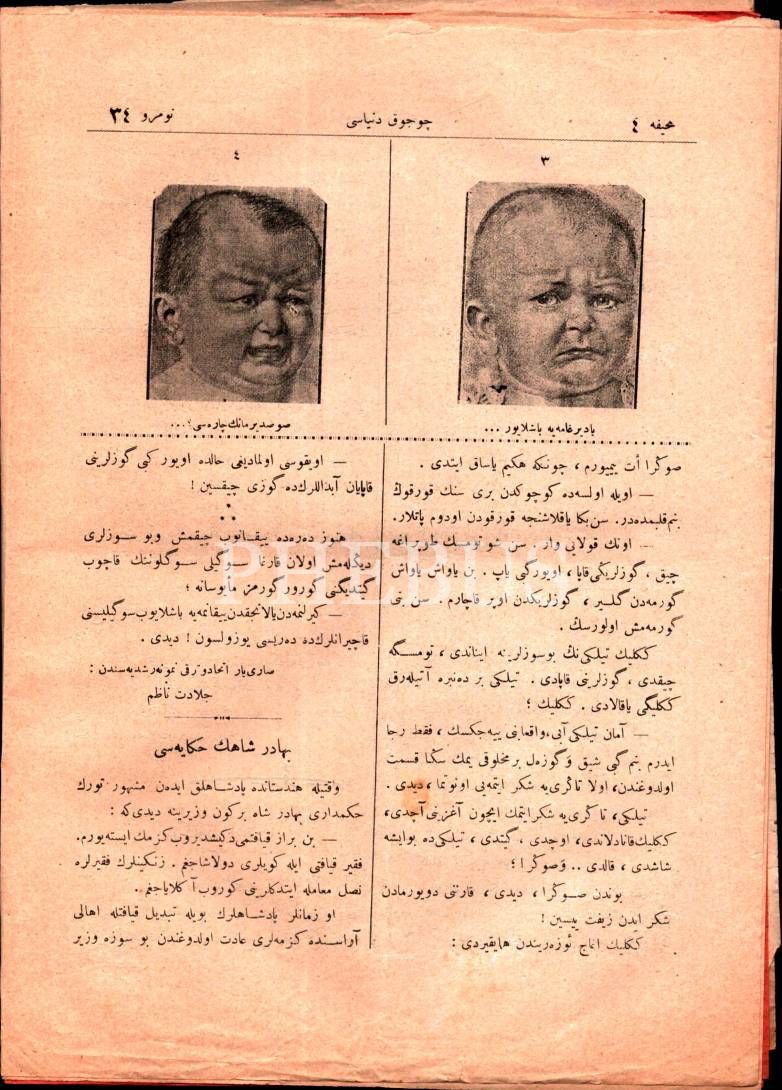 صحیفه ٤
چوجوق دنیاسی
نومرو ٣٤
٣
٤
یادیرغامه‌یه باشلایور ...
صوصدیرمانك چاره‌سی؟...
صوڭرا أت یمیورم ، چونكه هكیم یاساق ایتدی .
— اویله اولسه‌ده كوچوكدن بری سنك قورقوڭ
بنم قلبمده‌در. سن بكا یاقلاشنجه قورقودن اودوم پاتلار.
— اونك قولایی وار . سن شو تومسك طوپراغه
چیق ، گوزلریڭی قاپا ، اویورگی یاپ . بن یاواش یاواش
گورمه‌دن گلیر ، گوزلریڭدن اوپر قاچارم . سن بنی
گورمه‌مش اولورسك .
ككلیك تیلكی‌نڭ بو سوزلرینه ایناندی ، تومسگه
چیقدی ، گوزلرینی قاپادی . تیلكی بر ده‌نبره آتیله‌رق
ككلیگی یاقالادی . ككلیك ؛
— آمان تیلكی آبی، واقعا بنی ییه‌جكسك ، فقط رجا
ایدرم بنم گبی شیق و گوزه‌ل بر مخلوقی یمك سڭا قسمت
اولدوغندن، اولا تاڭری‌یه شكر ایتمه‌یی اونوتما ، دیدی .
تیلكی، تاڭری‌یه شكر ایتمك ایچون آغزینی آچدی،
ككلیك قانادلاندی، اوچدی ، گیتدی ، تیلكی‌ده بو ایشه
شاشدی ، قالدی .. و صوڭرا ؛
— بوندن صـوڭرا ، دیدی ، قارننی دویورمادن
شكر ایدن زفت ییسین !
ككلیك اغاج ئوزه‌ریندن هایقیردی :
— اویقوسی اولمادیغی حالده اویور كبی گوزلرینی
قاپایان آبداللرك‌ده گوزی چیقسین !
* * *
هنوز ده‌ره‌ده ییقـانوب چیقمش وبو سـوزلری
دیڭله‌مش اولان قارغا سـوگیلی سـوگلوننك قاچوب
گیتدیگنی گورور گورمز مأیوسانه ؛
— كیرلنمه‌دن یالانجقدن ییقانمه‌یه باشلایوب سوگیلیسنی
قاچیرانلرك‌ده ده‌ریسی یوزولسون ! دیدی .
صاری‌یار اتحاد و ترقی نمونه رشدیه‌سندن :
جلادت ناظم
بهادر شاهك حكایه‌سی
وقتیله هندستانده پادشـاهلق ایده‌ن مشهور تورك
حكمداری بهادر شاه بر كون وزیرینه دیدی كه :
— بن براز قیافتمی دكیشدیروب كزمك ایسته‌یورم.
فقیر قیافتی ایله كویلری دولاشاجغم . زنكینلرك فقیرلره
نصل معامله ایتدكلرینی كوروب آكلایاجغم .
او زمانلر پادشـاهلرك بویله تبدیل قیافتله اهالی
آراسنده كزمه‌لری عادت اولدوغندن بو سوزه وزیر
PHEBUS